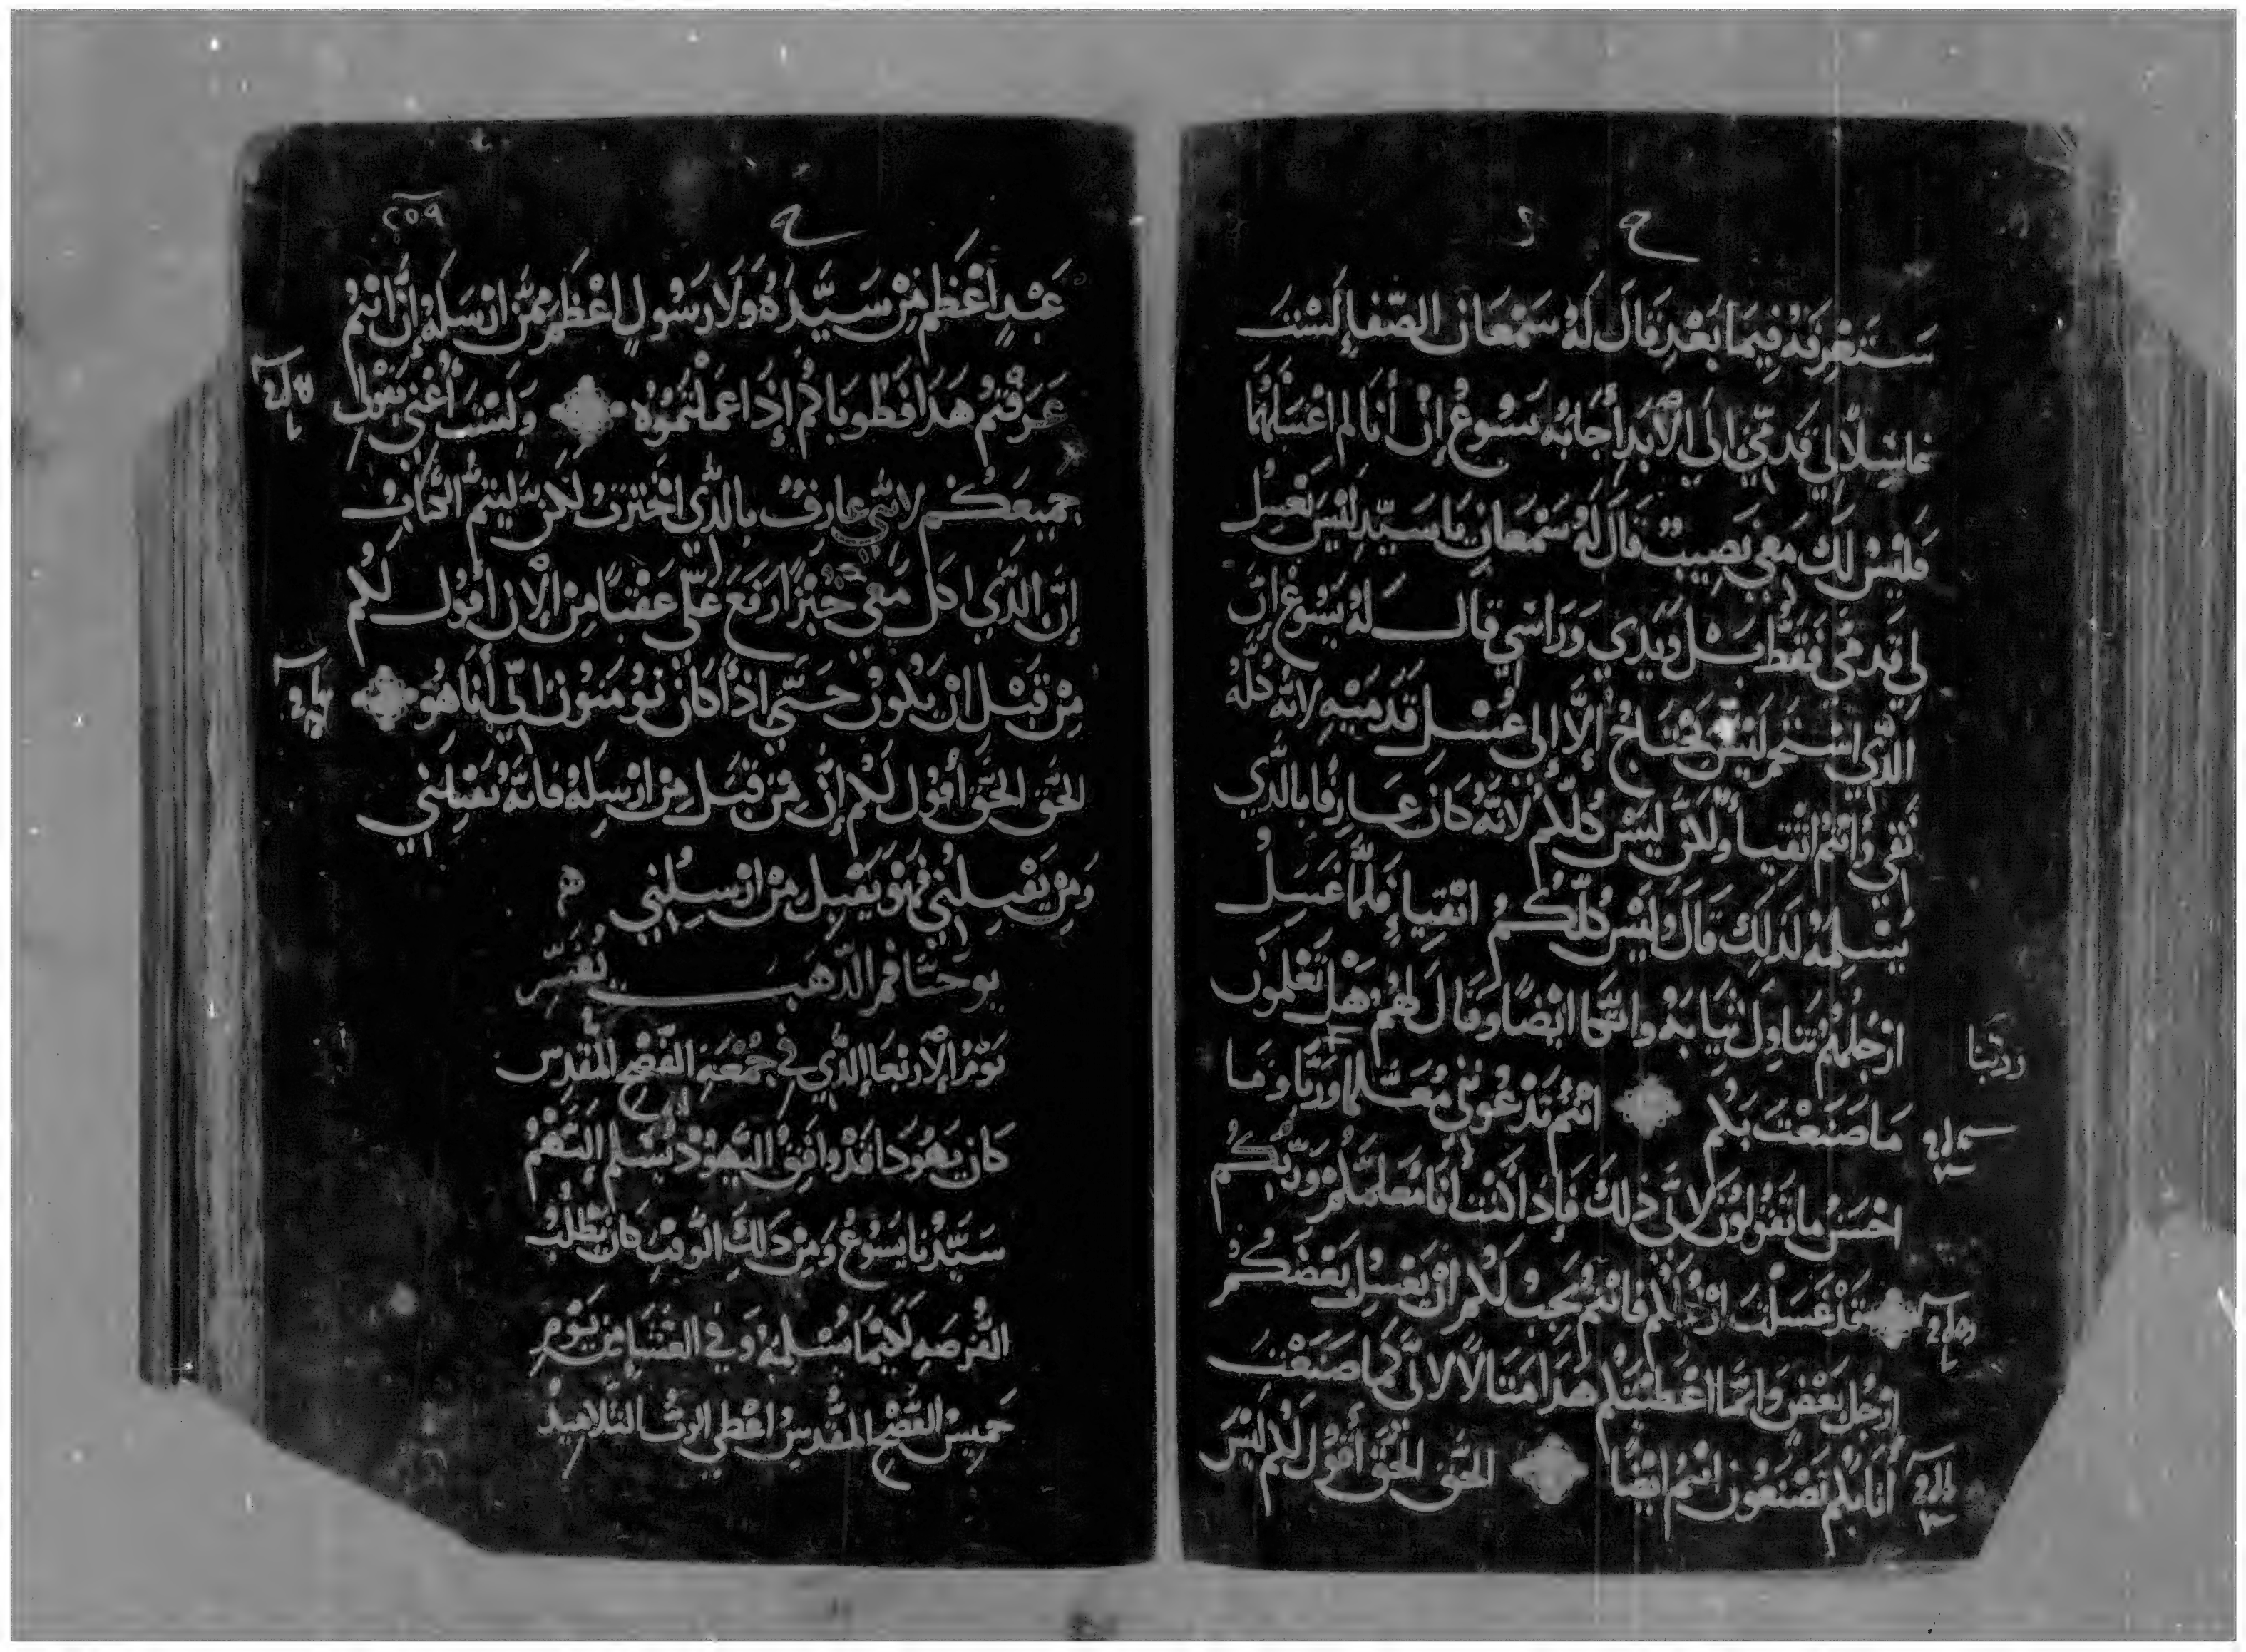 سَتَعْرِفَهُ فِيمَا بَعْدِ قَالَ لَهُ سَمْعَان الصَّفا لَسْتَ
غاسِلًا لِي قَدمَيَّ الَى الأَبَدِ أجَابَهُ يَسُوعُ إنْ أنَا لم اغْسَلْهَمَا
فَلَيْسَ لَكَ مَعِي نَصِيبٌ قَالَ لَهُ سَمْعَان يَا سَيّد لَيْسَ تَغْسِل
لِي قَدمَيّ فَقَطْ بَل وَيَدي وَرَاسِي قال لَهُ يَسُوع إنَّ
الَّذي اسْتَحَمَّ لَيْسَ يَحْتَاجُ إلَّا إلى غُسْلِ قَدَمَيْهِ لانّهُ كُلُّهُ
نَقي وَانتُمْ انْقِيا وَلكن لَيْسَ كُلّكُم لانَّهُ كَانَ عَارِفًا بالذَّي
يُسْلِمُهُ لذلِكَ قَالَ لَيْسَ كُلّكُمُ انْقِيا فَلمَّا غَسَلَ
ارْجُلَهُمُ تَنَاوَلَ ثِيَابَهُ واتَّكَا ايْضًا وَقَالَ لَهُمْ هَلْ تَعْلَمُونَ
مَا صَنَعْتَ بَكُم انْتُمْ تَدْعُونَنِي مُعَلّمًا وَرَبًّا وَمَا
احْسَنُ مَا تَقُولُونَ لانَّي ذلِكَ فَإذا كُنْت انَا مُعَلّمكُمْ وَرَبّكُم
قَدْ غَسَلْتَ ارْجُلَكُم فَانتُم يَجِبْ لَكُم انْ يَغْسِلْ بَعْضُكُم
ارْجُلَ بَعْضٍ وَانَّمَا اعْطَيْتَكُم هَذَا مَثَالًا لانَّي كَمَا صَنَعْتَ
أنَا بكُم تَصْنَعُونَ انْتُمْ ايْضًا الحَقَّ الحَقَّ أقُول لَكُم لَيْسَ
٢٥٩
عَبْدٍ اعْظَم مِنْ سَيَّدهُ وَلَا رَسُولٍ اعْظَم مِمَّن ارْسَلَهُ إنْ انْتُمُ
عَرَفْتُمُ هَذَا فَطُوبَاكُم إذَا عَمَلْتُمُوهُ وَلَسْتَ أعْنِي بَقَوْلِي
جَمِيعَكُم لانّي عَارِفٌ بِالذَّي اخْتَرْتُ لكِنْ لَيتمّ الكتَابُ
إنَّ الذَّي اكَل مَعي خُبْزًا رَفَعَ عَلَيّ عَقْبَهُ مِن الآن اقُول لَكُم
مِنْ قَبْل انْ يَكُون حَتَّي اذَا كَانَ تُومنُونَ انّي أنَا هُو
الحَقّ الحَقَّ أقُول لَكُم إنَّ مَنْ قَبَل مَن ارْسِلهُ فَانَّهُ يَقْبَلني
وَمِنْ يَقْبِلنِي فَهَوَ يَقْبِل مَنْ ارْسَلَنِي
يُوحَنَّا فَم الدَّهَبَ يُفَسِّر
يَوْمُ الأرْبَعَا الذِّي فِي جُمْعَة الفصْح المُقَدس
كَانَ يَهُودَا قَدْ وَافَقَ اليَهُودْ يُسَلم إلَيْهُمُ
سَيَّدنَا يَسُوعُ وَمِنْ ذَلِكَ الوَقْتِ كَان يَطْلُبُ
الفُرصَه لَكَيْمَا يُسْلِمَهُ وَفي العَشَا مِن يَوْمِ
خَمِيسْ الفصْح المُقَدسُ اعْطَى الربُ التَلَامِيذ